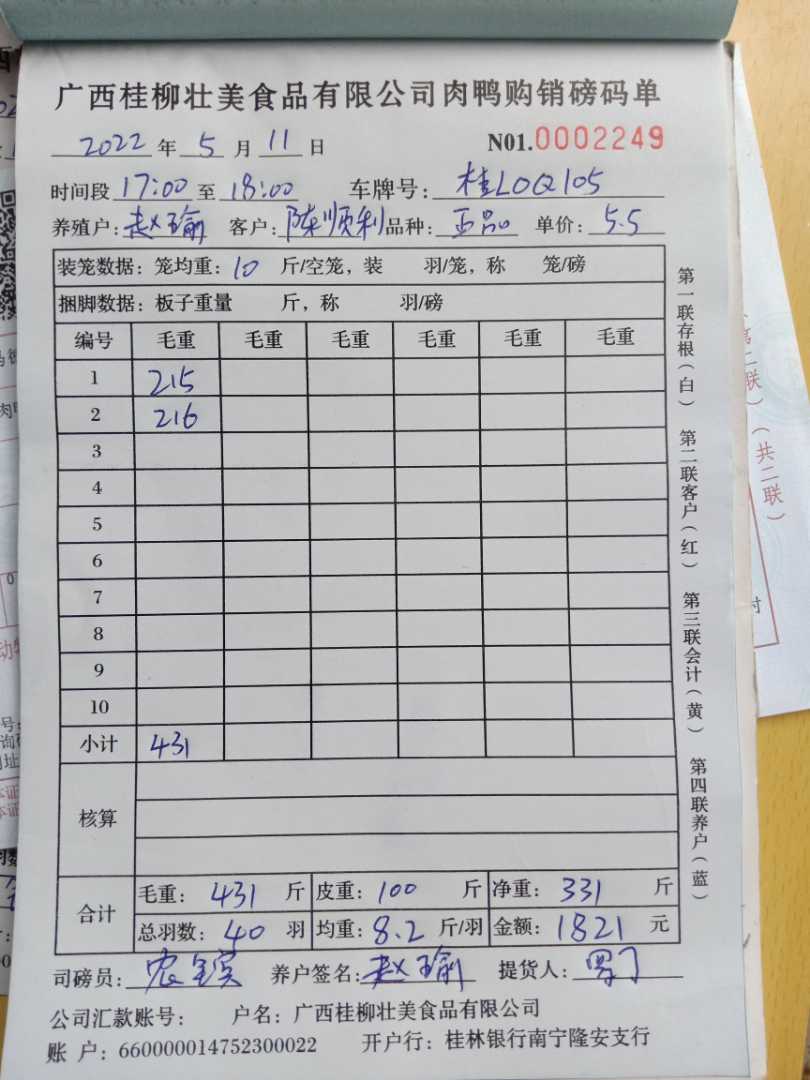 广西桂柳壮美食品有限公司肉鸭购销磅码单
2022 年 5 月 11 日 N01.0002249
时间段 17:00 至 18:00 车牌号: 桂L0Q105
养殖户: 赵瑜 客户: 陈顺利 品种: 正品 单价: 5.5
装笼数据: 笼均重: 10 斤/空笼, 装 羽/笼, 称 笼/磅
捆脚数据: 板子重量 斤, 称 羽/磅
编号 毛重 毛重 毛重 毛重 毛重 毛重
1 215
2 216
3
4
5
6
7
8
9
10
小计 431
核算
合计
毛重: 431 斤 皮重: 100 斤 净重: 331 斤
总羽数: 40 羽 均重: 8.2 斤/羽 金额: 1821 元
司磅员: 农 养户签名: 赵瑜 提货人:
公司汇款账号: 户名: 广西桂柳壮美食品有限公司
账 户: 660000014752300022 开户行: 桂林银行南宁隆安支行
第一联存根(白) 第二联客户(红) 第三联会计(黄) 第四联养户(蓝)
第二联)(共二联)